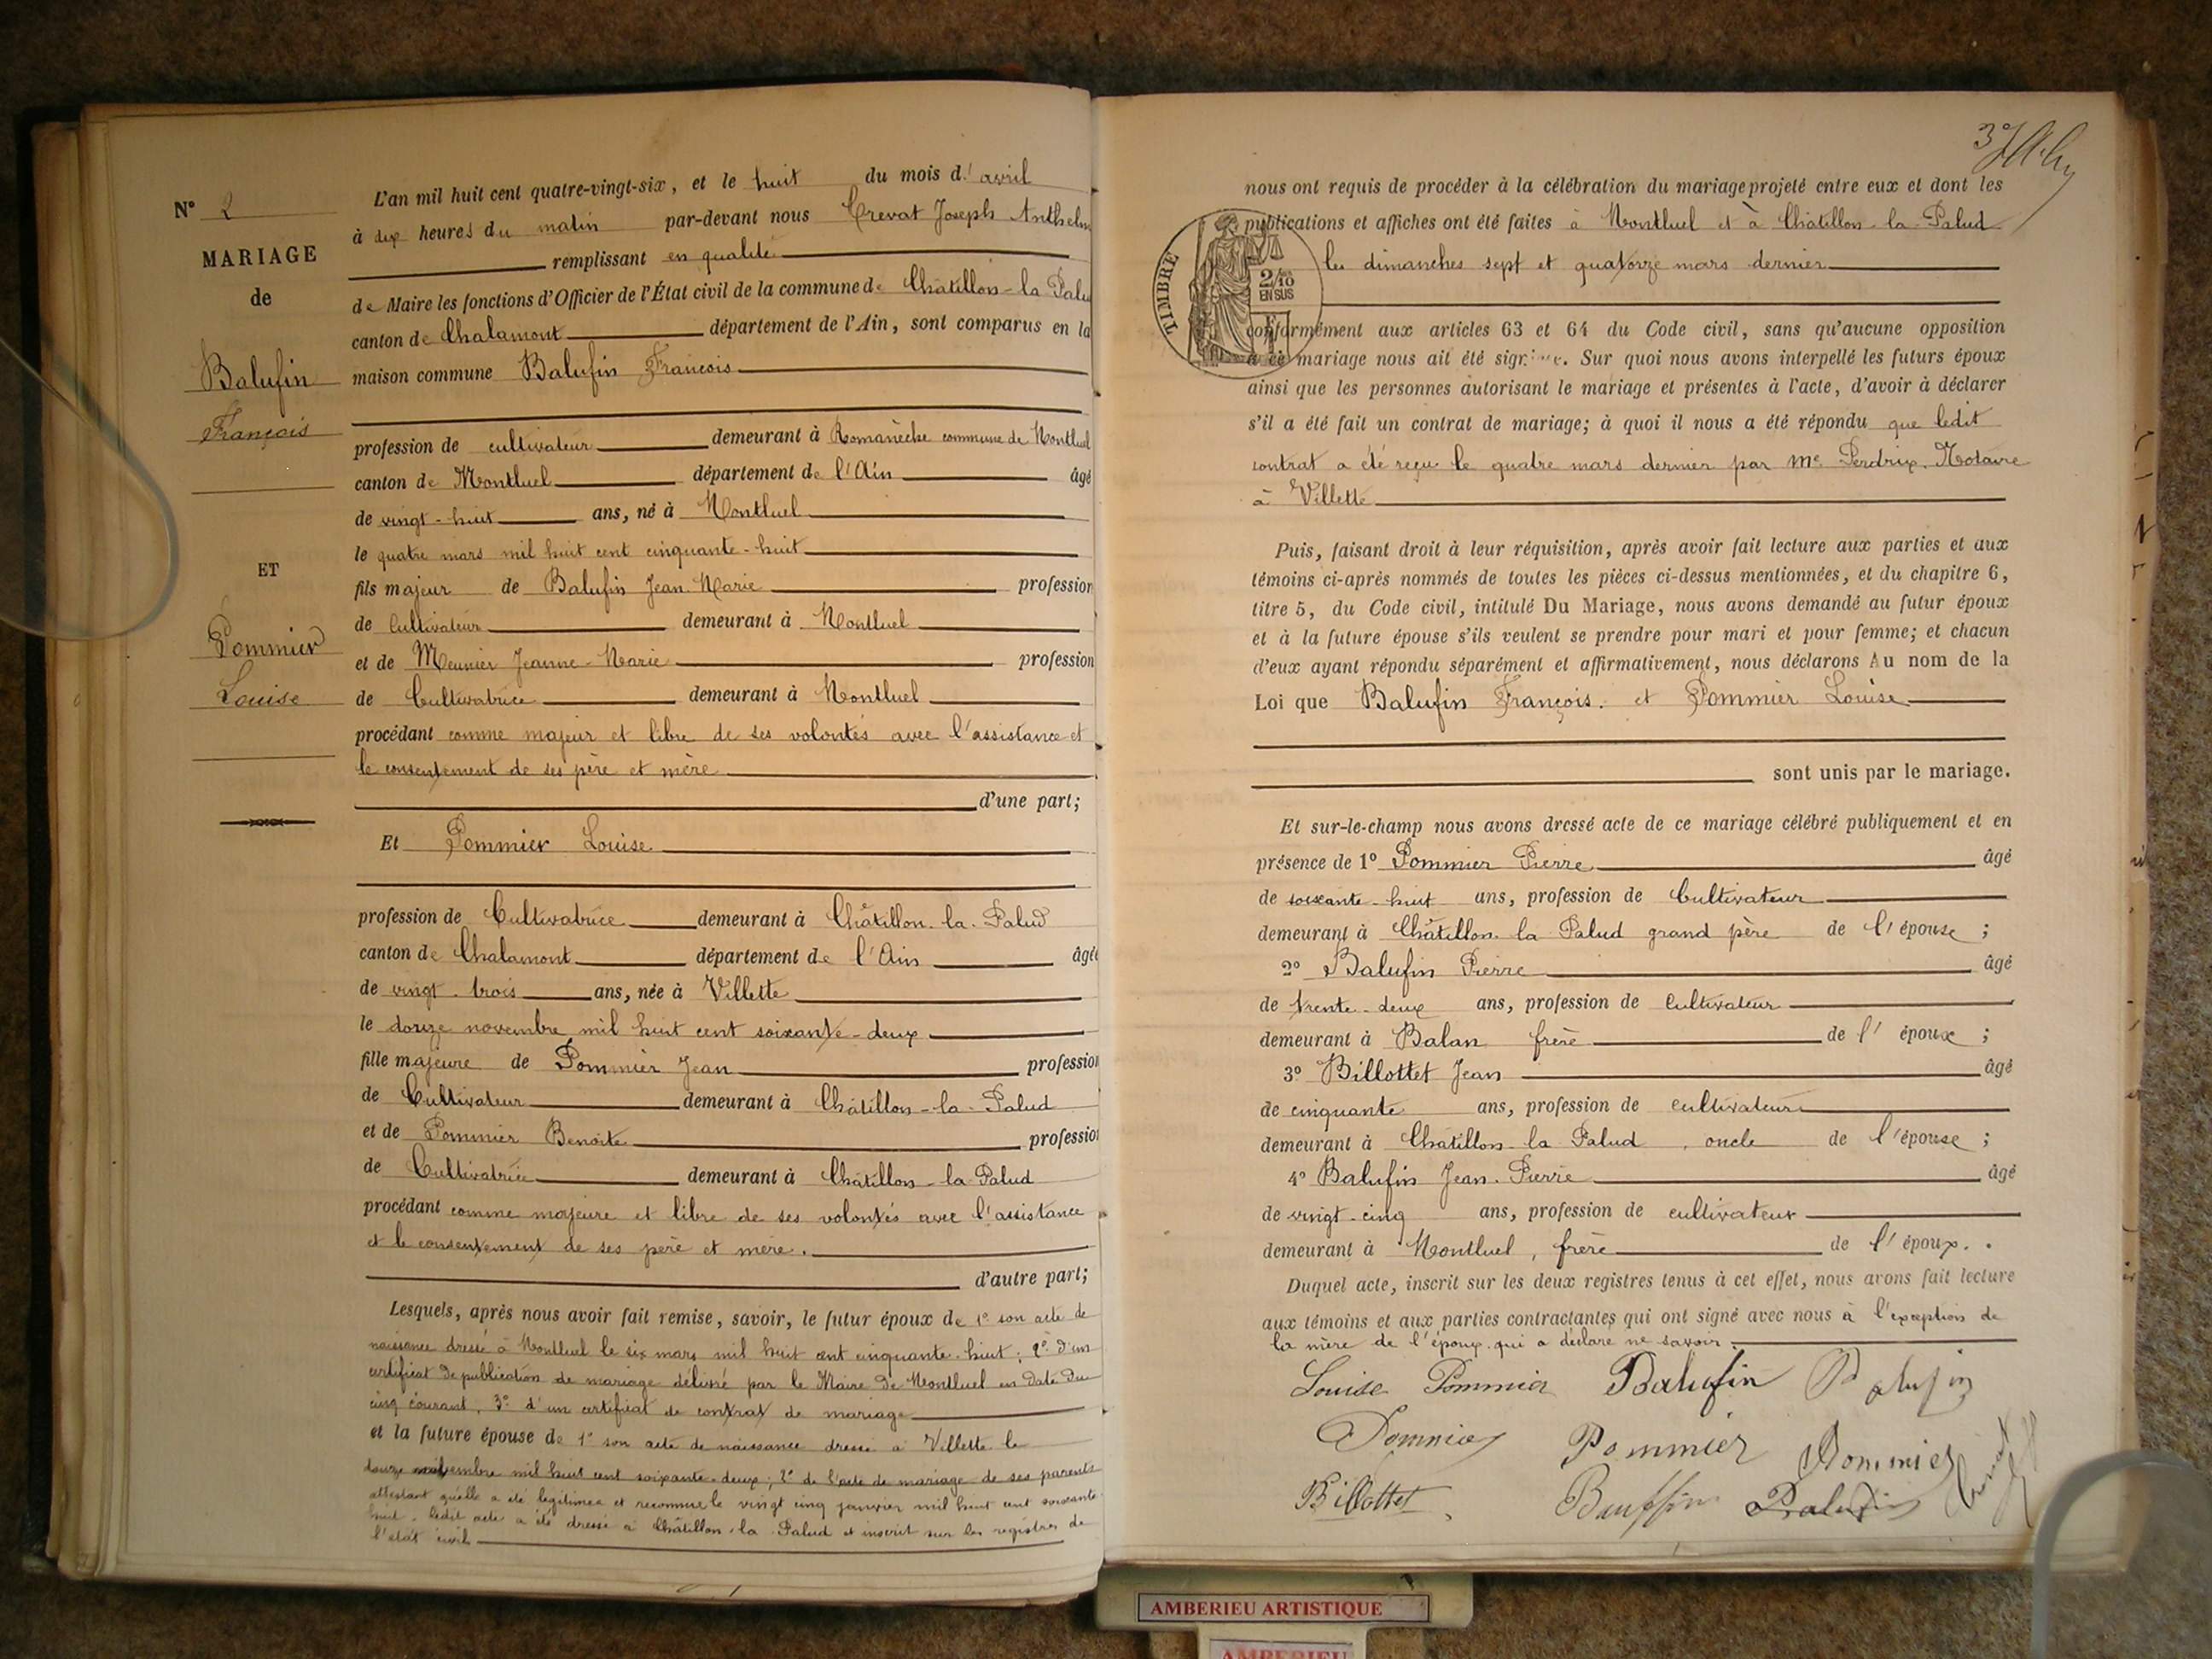 N° 2
MARIAGE
de
Balufin
François
ET
Pommier
Louise
L'an mil huit cent quatre-vingt-six, et le huit du mois d'avril
à dix heures du matin par-devant nous Crevat Joseph Anthelm
remplissant en qualité
de Maire les fonctions d'Officier de l'État civil de la commune de Châtillon-la Palu
canton de Chalamont département de l'Ain, sont comparus en la
maison commune Balufin François
profession de cultivateur demeurant à Romanèche commune de Montluel
canton de Montluel département de l'Ain âgé
de vingt-huit ans, né à Montluel
le quatre mars mil huit cent cinquante-huit
fils majeur de Balufin Jean Marie profession
de Cultivateur demeurant à Montluel
et de Meunier Jeanne-Marie profession
de Cultivatrice demeurant à Montluel
procédant comme majeur et libre de ses volontés avec l'assistance et
le consentement de ses père et mère
d'une part;
Et Pommier Louise
profession de Cultivatrice demeurant à Châtillon-la-Palud
canton de Chalamont département de l'Ain âgée
de vingt-trois ans, née à Villette
le douze novembre mil huit cent soixante-deux
fille majeure de Pommier Jean profession
de Cultivateur demeurant à Châtillon-la-Palud
et de Pommier Benoite profession
de Cultivatrice demeurant à Châtillon-la Palud
procédant comme majeure et libre de ses volontés avec l'assistance
et le consentement de ses père et mère.
d'autre part;
Lesquels, après nous avoir fait remise, savoir, le futur époux de 1° son acte de
naissance dressé à Montluel le six mars mil huit cent cinquante-huit; 2° d'un
certificat de publication de mariage délivré par le Maire de Montluel en date du
cinq courant, 3° d'un certificat de contrat de mariage
et la future épouse de 1° son acte de naissance dressé à Villette le
douze novembre mil huit cent soixante-deux; 2° de l'acte de mariage de ses parents
attestant quelle a été légitimée et reconnue le vingt cinq janvier mil huit cent soixante
huit, ledit acte a été dressé à Châtillon-la-Palud et inscrit sur les registres de
l'état civil
nous ont requis de procéder à la célébration du mariage projeté entre eux et dont les
publications et affiches ont été faites à Montluel et à Châtillon-la-Palud
les dimanches sept et quatorze mars dernier
TIMBRE
2/10
EN SUS
conformément aux articles 63 et 64 du Code civil, sans qu'aucune opposition
à ce mariage nous ait été signifiée. Sur quoi nous avons interpellé les futurs époux
ainsi que les personnes autorisant le mariage et présentes à l'acte, d'avoir à déclarer
s'il a été fait un contrat de mariage; à quoi il nous a été répondu que ledit
contrat a été reçu le quatre mars dernier par Me Perdrix, Notaire
à Villette
Puis, faisant droit à leur réquisition, après avoir fait lecture aux parties et aux
témoins ci-après nommés de toutes les pièces ci-dessus mentionnées, et du chapitre 6,
titre 5, du Code civil, intitulé Du Mariage, nous avons demandé au futur époux
et à la future épouse s'ils veulent se prendre pour mari et pour femme; et chacun
d'eux ayant répondu séparément et affirmativement, nous déclarons Au nom de la
Loi que Balufin François. et Pommier Louise
sont unis par le mariage.
Et sur-le-champ nous avons dressé acte de ce mariage célébré publiquement et en
présence de 1° Pommier Pierre âgé
de soixante-huit ans, profession de Cultivateur
demeurant à Châtillon-la Palud grand père de l'épouse;
2° Balufin Pierre âgé
de trente-deux ans, profession de Cultivateur
demeurant à Balan frère de l'époux;
3° Billottet Jean âgé
de cinquante ans, profession de cultivateur
demeurant à Châtillon-la Palud, oncle de l'épouse;
4° Balufin Jean-Pierre âgé
de vingt-cinq ans, profession de cultivateur
demeurant à Montluel, frère de l'époux.
Duquel acte, inscrit sur les deux registres tenus à cet effet, nous avons fait lecture
aux témoins et aux parties contractantes qui ont signé avec nous à l'exception de
la mère de l'époux qui a déclaré ne savoir.
Louise Pommier Balufin Balufin
Pommier Pommier Pommier
Billottet Balufin Crevat
AMBERIEU ARTISTIQUE
AMBERIEU